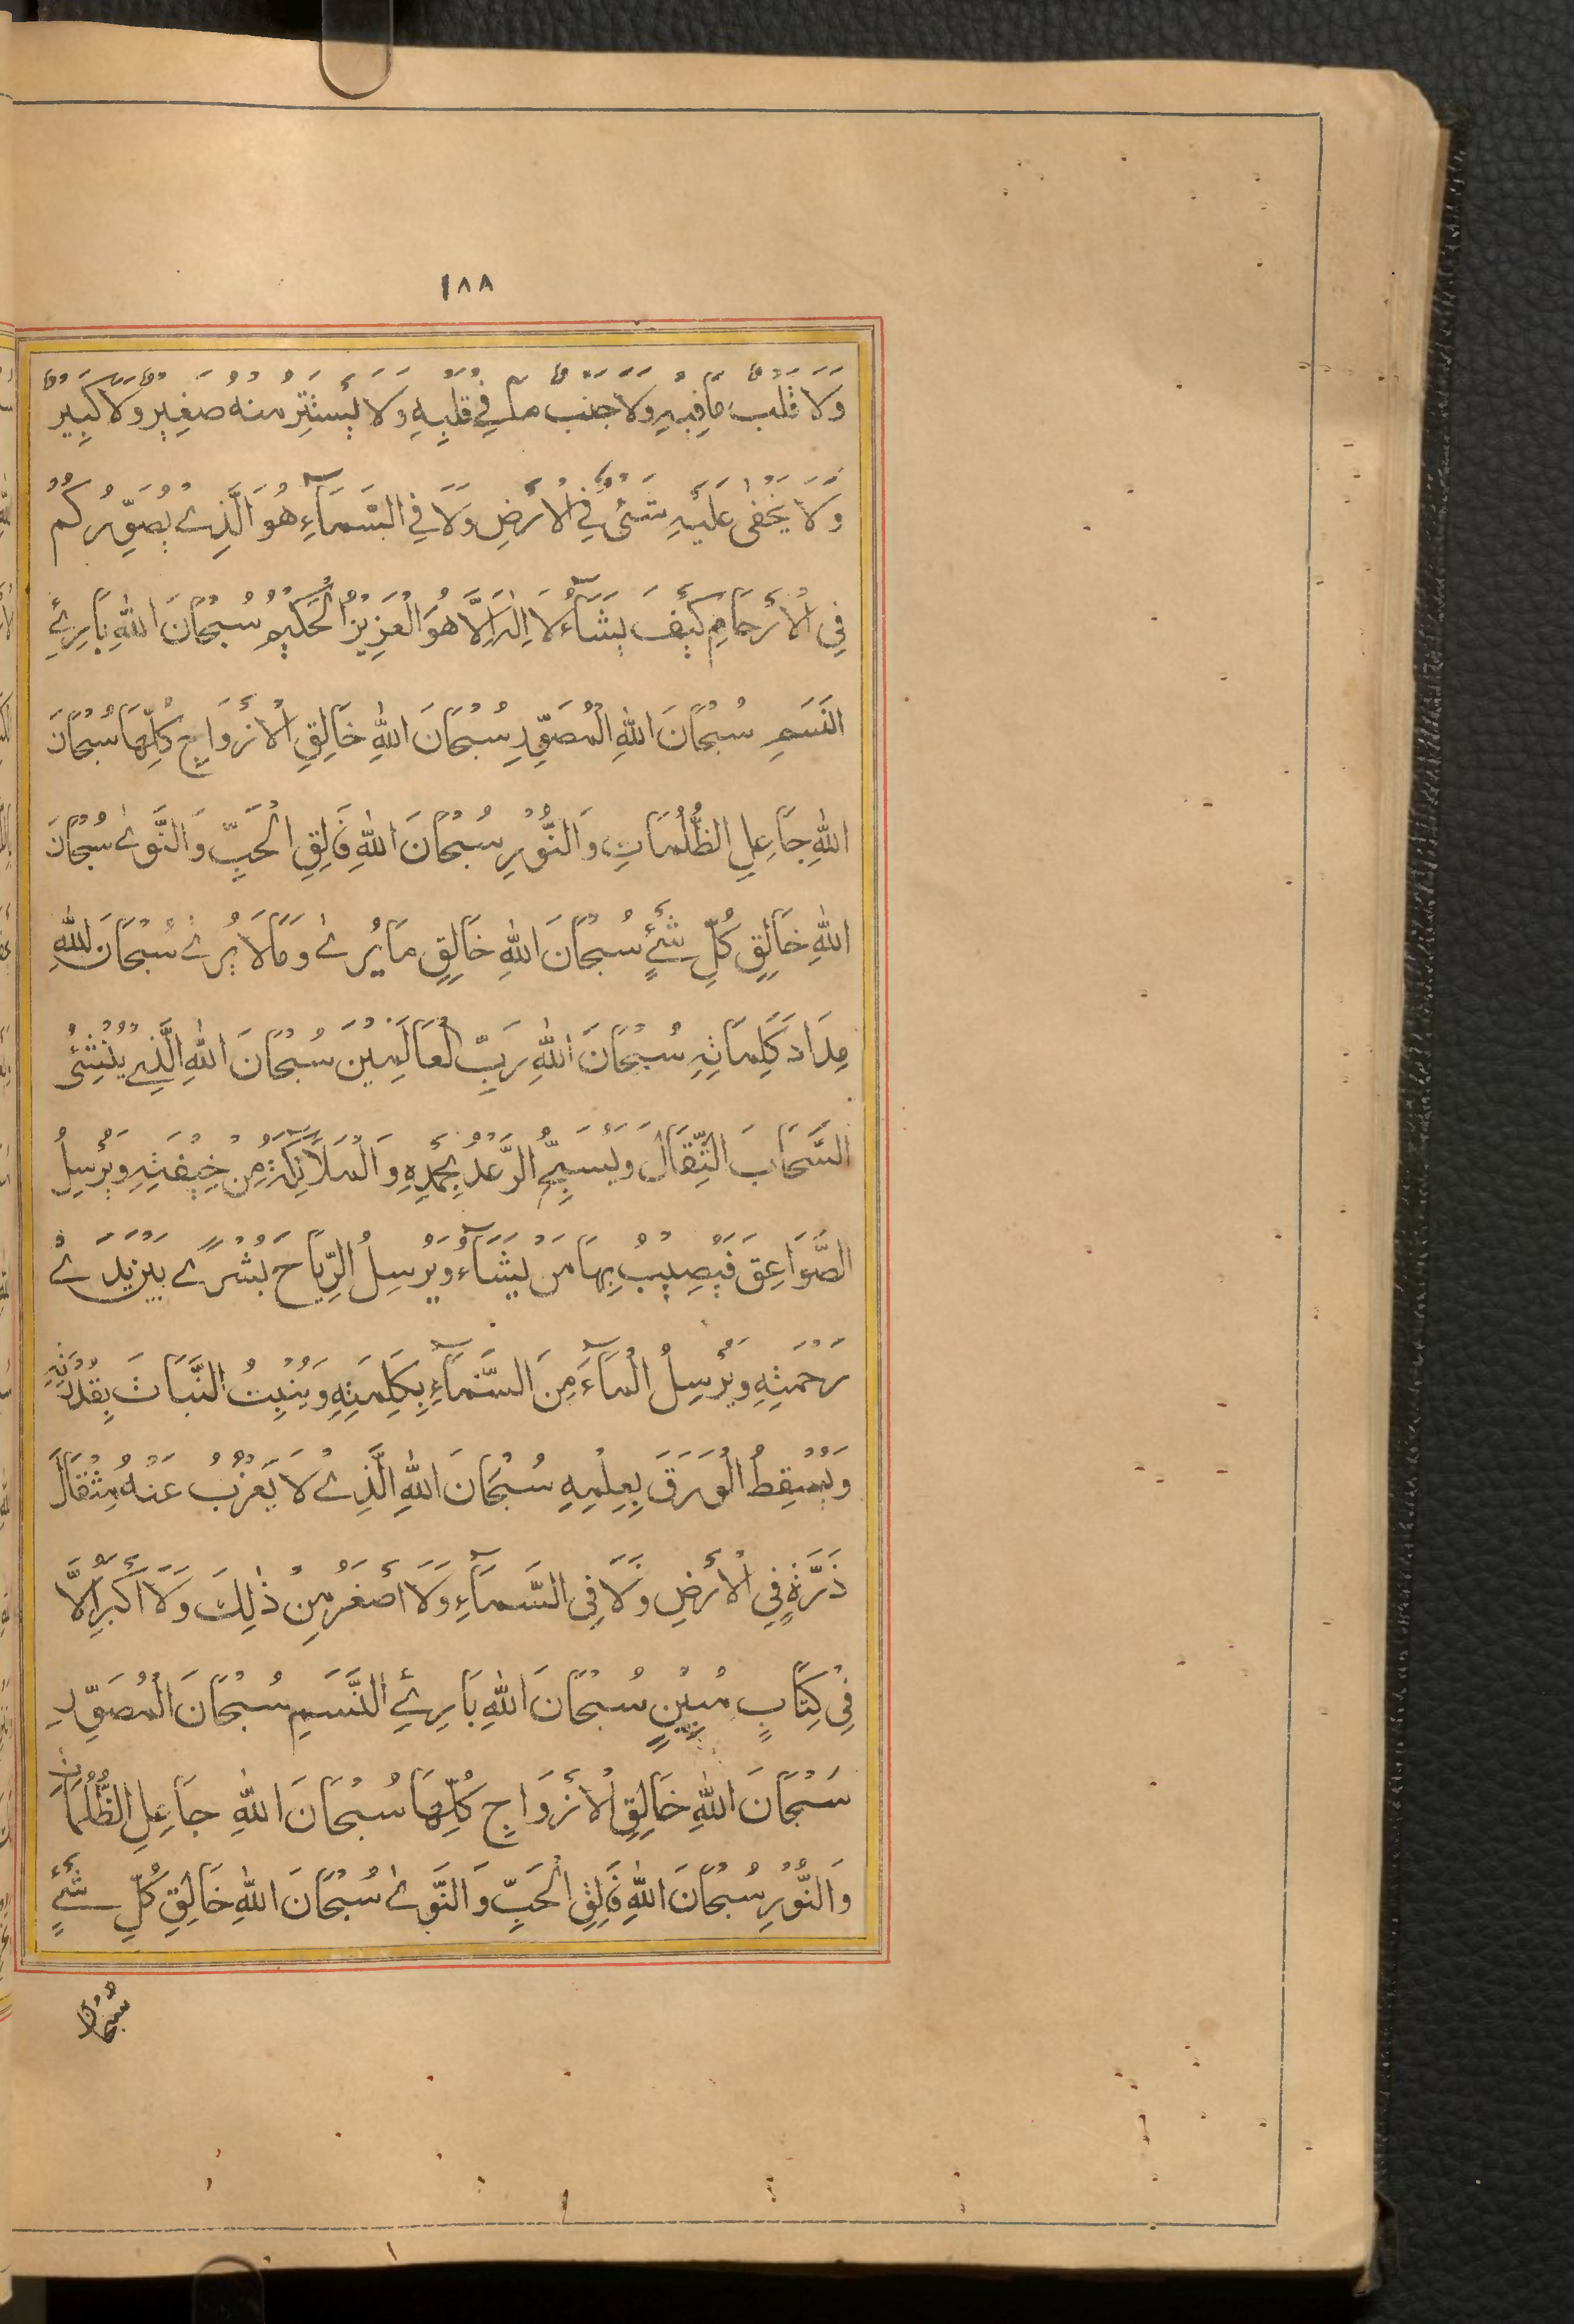 ١٨٨
وَلَا قَلْبٌ مَا فِيهِ وَلَا جَنْبٌ مَا فِي قَلْبِهِ وَلَا يَسْتَتِرُ مِنْهُ صَغِيرٌ وَلَا كَبِيرٌ
وَلَا يَخْفٰى عَلَيْهِ شَيْئٌ فِي الْأَرْضِ وَلَا فِي السَّمَآءِ هُوَ الَّذِي يُصَوِّرُكُمْ
فِي الْأَرْحَامِ كَيْفَ يَشَآءُ لَا اِلٰهَ اِلَّا هُوَ الْعَزِيزُ الْحَكِيمُ سُبْحَانَ اللهِ بَارِئِ
النَّسَمِ سُبْحَانَ اللهِ الْمُصَوِّرِ سُبْحَانَ اللهِ خَالِقِ الْأَزْوَاجِ كُلِّهَا سُبْحَانَ
اللهِ جَاعِلِ الظُّلُمَاتِ وَالنُّوْرِ سُبْحَانَ اللهِ فَالِقِ الْحَبِّ وَالنَّوٰى سُبْحَانَ
اللهِ خَالِقِ كُلِّ شَيْئٍ سُبْحَانَ اللهِ خَالِقِ مَا يُرٰى وَمَا لَا يُرٰى سُبْحَانَ اللهِ
مِدَادَ كَلِمَاتِهِ سُبْحَانَ اللهِ رَبِّ الْعَالَمِيْنَ سُبْحَانَ اللهِ الَّذِي يُنْشِئُ
السَّحَابَ الثِّقَالَ وَيُسَبِّحُ الرَّعْدُ بِحَمْدِهِ وَالْمَلَآئِكَةُ مِنْ خِيْفَتِهِ وَيُرْسِلُ
الصَّوَاعِقَ فَيُصِيْبُ بِهَا مَنْ يَشَآءُ وَيُرْسِلُ الرِّيَاحَ بُشْرًى بَيْنَ يَدَيْ
رَحْمَتِهِ وَيُرْسِلُ الْمَآءَ مِنَ السَّمَآءِ بِكَلِمَتِهِ وَيُنْبِتُ النَّبَاتَ بِقُدْرَتِهِ
وَيُسْقِطُ الْوَرَقَ بِعِلْمِهِ سُبْحَانَ اللهِ الَّذِي لَا يَعْزُبُ عَنْهُ مِثْقَالُ
ذَرَّةٍ فِي الْأَرْضِ وَلَا فِي السَّمَآءِ وَلَا أَصْغَرُ مِنْ ذٰلِكَ وَلَا أَكْبَرُ اِلَّا
فِيْ كِتَابٍ مُبِيْنٍ سُبْحَانَ اللهِ بَارِئِ النَّسَمِ سُبْحَانَ الْمُصَوِّرِ
سُبْحَانَ اللهِ خَالِقِ الْأَزْوَاجِ كُلِّهَا سُبْحَانَ اللهِ جَاعِلِ الظُّلُمَاتِ
وَالنُّوْرِ سُبْحَانَ اللهِ فَالِقِ الْحَبِّ وَالنَّوٰى سُبْحَانَ اللهِ خَالِقِ كُلِّ شَيْئٍ
سُبْحَانَ